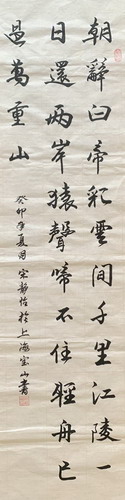 朝辭白帝彩雲間千里江陵一
日還兩岸猿聲啼不住輕舟已
過萬重山
癸卯年夏月宋静怡於上海宝山書